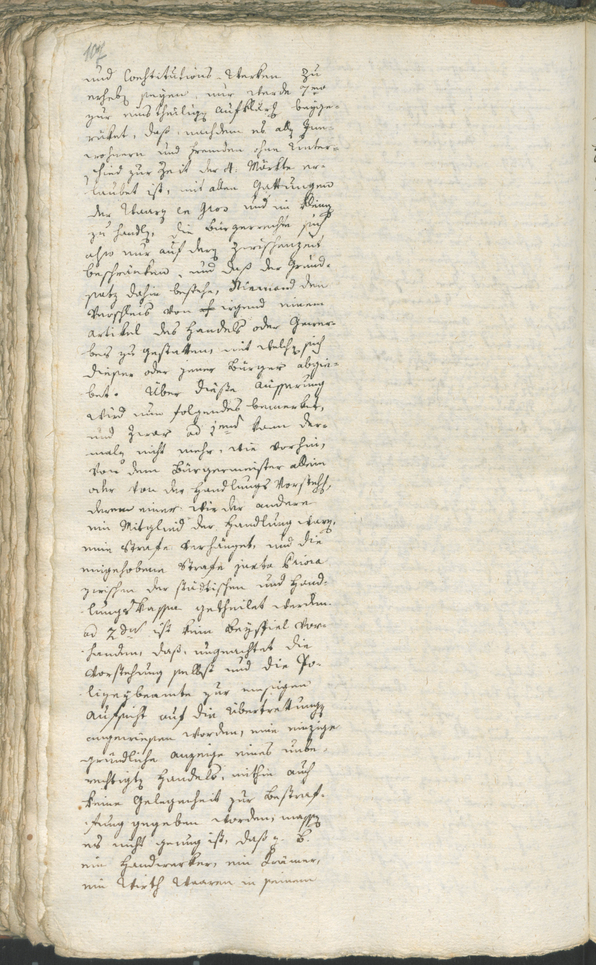 und Constitutions-Werken zu
erheben seyen, nur werde 7mo
zur einstheiligen Aufklärung beyge-
rücket, daß, nachdem es allen Inn-
wohnern und Fremden ohne Unter-
schied zur Zeit der 4. Märkte er-
laubet ist, mit allen Gattungen
der Waaren en Gros und im kleinen
zu handlen, die Bürgerrechte sich
also nur auf deren Zwischenzeit
beschränken, und daß der Grund-
satz dahin bestehe, Niemand den
Verschleis von irgend einem
Artikel des Handels oder Gewer-
bes zu gestatten, mit welchen sich
dieser oder jener Bürger abgie-
bet. Über diese Äusserung
wird nun folgendes bemerket,
und zwar ad 1mum kann der-
malen nicht mehr, wie vorhin,
von dem Bürgermeister allein
oder von der Handlungs Vorstehung,
deren einer wie der andere
ein Mitglied der Handlung waren,
eine Strafe verhänget, und die
eingehobene Strafe
zwischen der städtischen und Hand-
lungs Kasse getheilet werden.
ad 2dum ist kein Beyspiel vor-
handen, daß, ungeachtet die
Vorstehung selbst und die Po-
lizeybeamte zur emsigen
Aufsicht auf die Übertrettungen
angewiesen worden, eine einzige
gründliche Anzeige eines unbe-
rechtigten Handels, mithin auch
keine Gelegenheit zur Bestraf-
fung gegeben worden, massen
es nicht genug ist, daß z. B.
ein Handwerker, ein Krämer,
ein Wirth Waaren in seinem